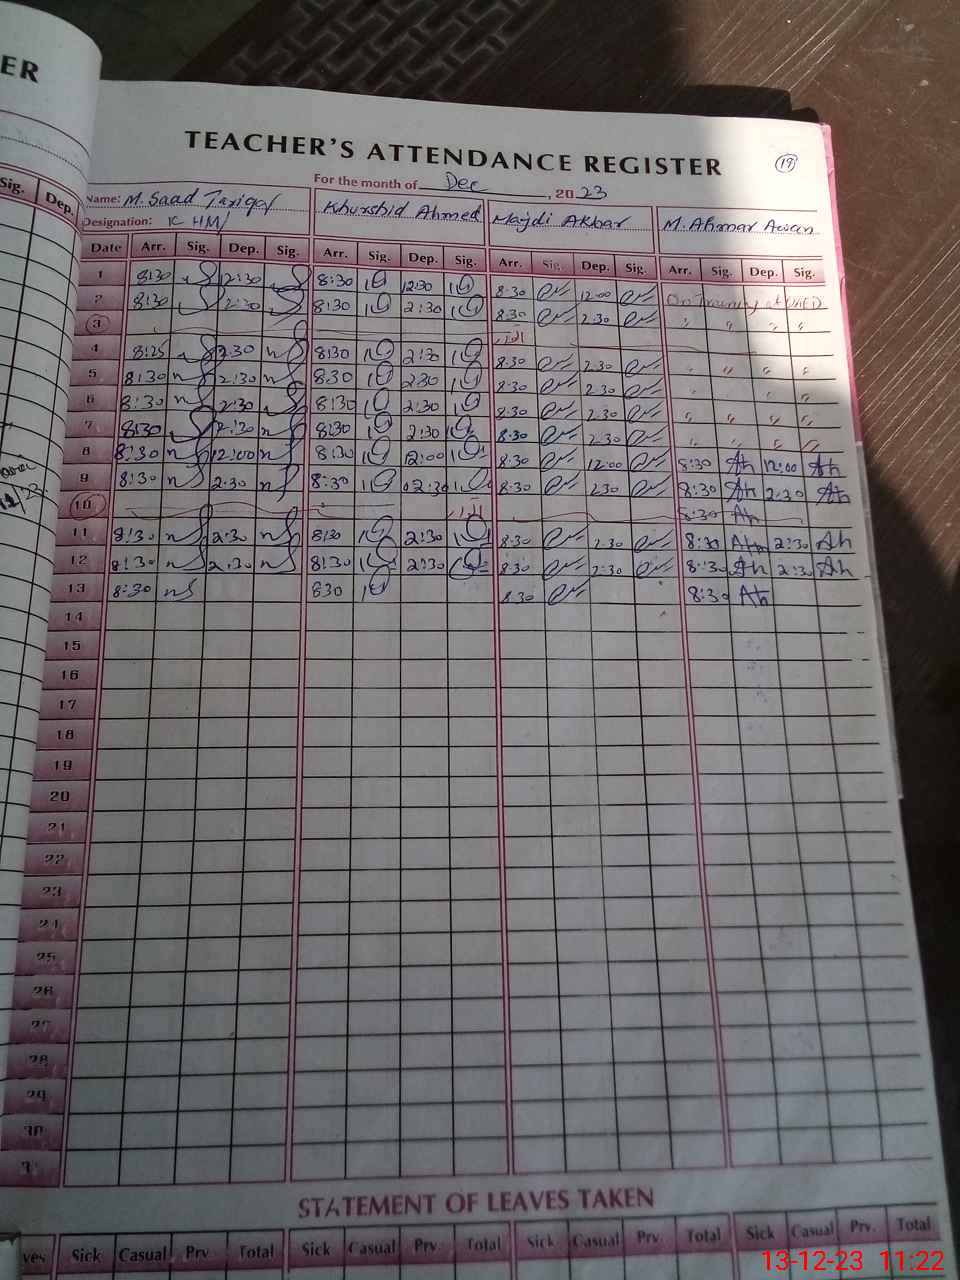 ER
TEACHER'S ATTENDANCE REGISTER
19
For the month of Dec, 2023
Sig. Dep.
Name: M. Saad Tariq Khurshid Ahmed Majdi Akbar M. Ahmar Awan
Designation: IC HM/
Date Arr. Sig. Dep. Sig. Arr. Sig. Dep. Sig. Arr. Sig. Dep. Sig. Arr. Sig. Dep. Sig.
1 8:30 12:30 8:30 12:30 8:30 12:00 On Training at
2 8:30 2:30 8:30 2:30 8:30 2:30 " " " "
3
4 8:25 2:30 8:30 2:30 8:30 2:30 " " " "
5 8:30 2:30 8:30 2:30 8:30 2:30
6 8:30 2:30 8:30 2:30 8:30 2:30 " " " "
7 8:30 2:30 8:30 2:30 8:30 2:30 " " " "
8 8:30 12:00 8:30 12:00 8:30 12:00 8:30 Ah 12:00 Ah
9 8:30 2:30 8:30 02:30 8:30 2:30 8:30 Ah 2:30 Ah
10 8:30 Ah
11 8:30 2:30 8:30 2:30 8:30 2:30 8:30 Ah 2:30 Ah
12 8:30 2:30 8:30 2:30 8:30 2:30 8:30 Ah 2:30 Ah
13 8:30 8:30 8:30 8:30 Ah
14
15
16
17
18
19
20
21
22
23
24
25
26
27
28
29
30
31
STATEMENT OF LEAVES TAKEN
ves Sick Casual Prv. Total Sick Casual Prv. Total Sick Casual Prv. Total Sick Casual Prv. Total
13-12-23 11:22